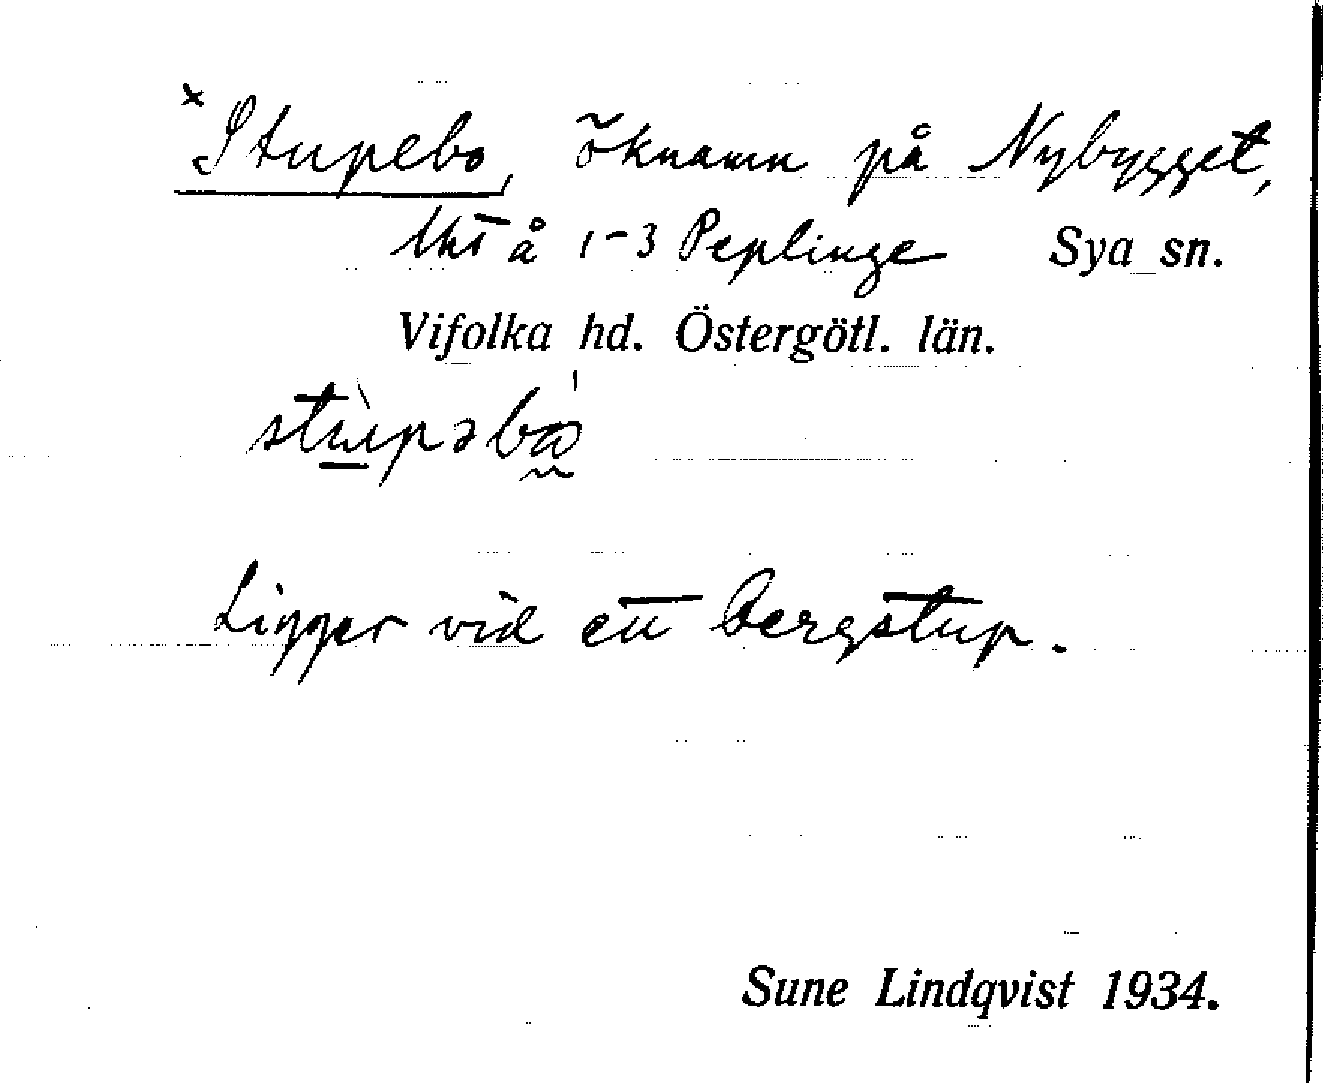 ˣStupebo, öknamn på Nybygget,
lht å 1-3 Peplinge Sya sn.
Vifolka hd. Östergötl. län.
stùpəbå̀
Ligger vid ett bergstup.
Sune Lindqvist 1934.